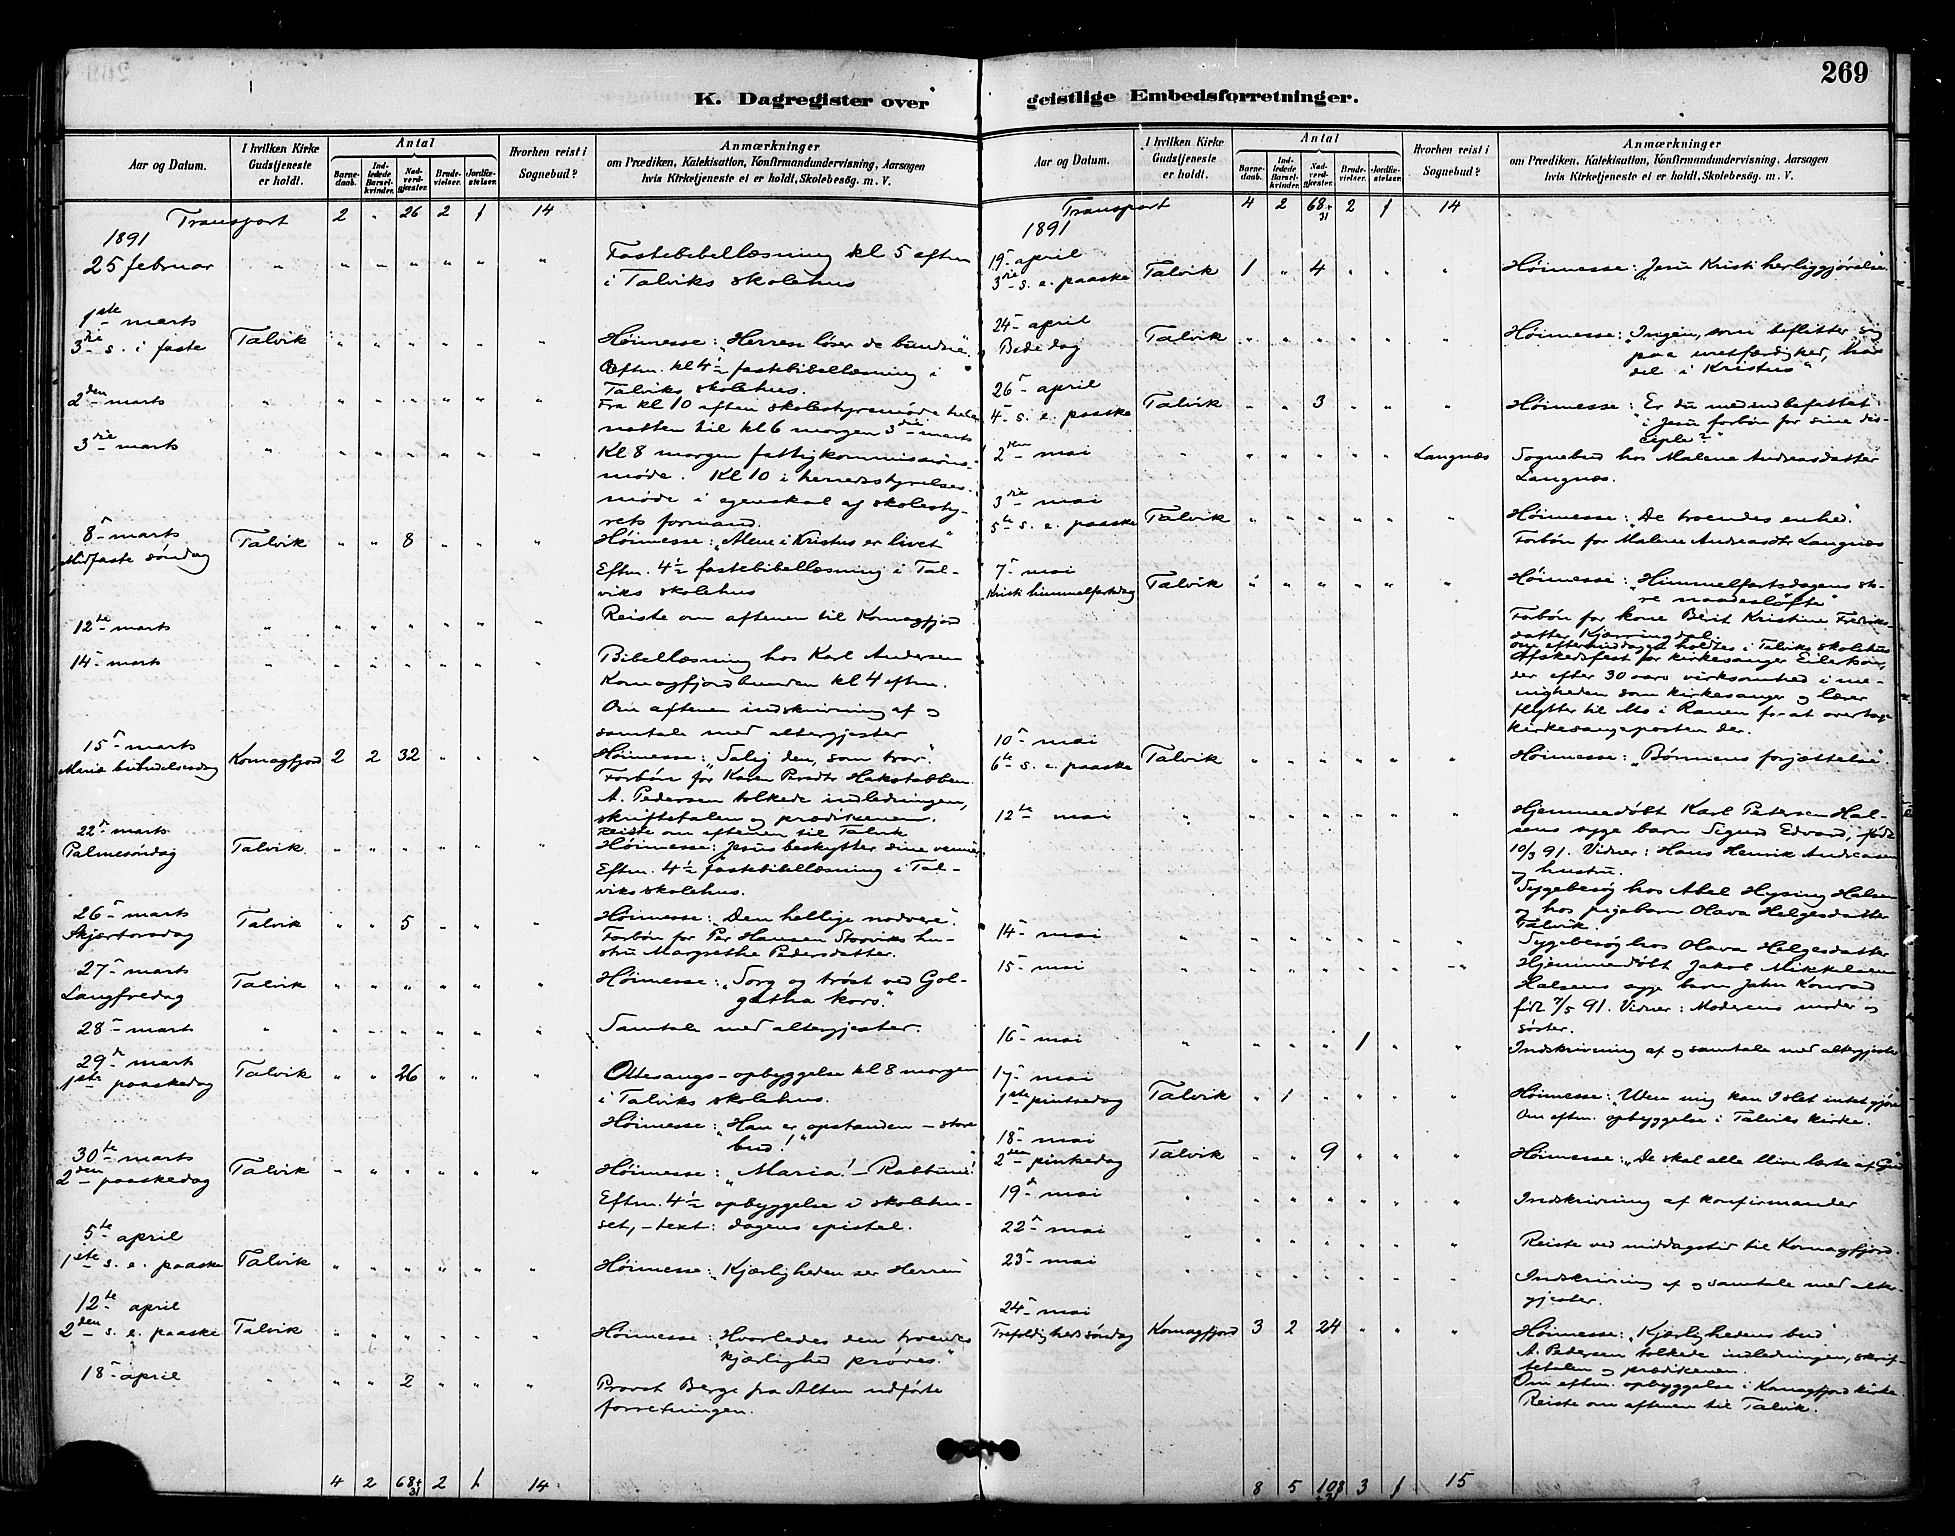 269
K. Dagregister over
Aar og Datum.
I hvilken Kirke Gudstjeneste er holdt.
Antal
Barnedaab.
Indledede Barselkvinder.
Nadverdgjester.
Brudevielser.
Jordfæstelser.
Hvorhen reist i Sognebud?
Anmærkninger
om Prædiken, Katekisation, Konfirmandundervisning, Aarsagen
hvis Kirketjeneste ei er holdt, Skolebesøg. m. V.
Transport 2 " 26 2 1 14
1891
25 februar " " " " " " " Fastebibellæsning kl 5 eftm
i Talviks skolehus
1ste marts
3die s. i faste Talvik " " " " " " Høimesse: "Herren løser de bundne"
Eftm. kl 4½ fastebibellæsning i
Talviks skolehus.
2den marts " " " " " " " Fra kl 10 eftm skolestyremøde hele
natten til kl 6 morgen 3die marts
3die marts " " " " " " " Kl 8 morgen fattigkommissions-
møde. Kl 10 i herredsstyrelses-
møde i egenskab af skolesty-
rets formand.
8 marts
Midfaste søndag Talvik " " 8 " " " Høimesse: "Mene i Kristus er livet"
Eftm. 4½ fastebibellæsning i Tal-
viks skolehus
12te marts " " " " " " " Reiste om aftenen til Komagfjord
14 marts " " " " " " " Bibellæsning hos Karl Andersen
Komagfjordbunden kl 4 eftm.
Om aftenen indskrivning af og
samtale med altergjester
15 marts
Mariæ bebudelsesdag Komagfjord 2 2 32 " " " Høimesse: "Salig den, som tror".
Forbøn for Karen Persdtr Hakstabben.
A. Pedersen tolkede indledningen,
skriftetalen og prædikenen.
Reiste om aftenen til Talvik
22 marts
Palmesøndag Talvik " " " " " " Høimesse: Jesus beskytter dine venner
Eftm. 4½ fastebibellæsning i Tal-
viks skolehus.
26 marts
Skjærtorsdag Talvik " " 5 " " " Høimesse: "Den hellige nadvere".
Forbøn for Per Hansen Storviks hu-
stru Margrethe Pedersdatter.
27 marts
Langfredag Talvik " " " " " " Høimesse: "Sorg og trøst ved Gol-
gatha kors"
28 marts " " " " " " " Samtale med altergjester.
29 marts
1ste paaskedag Talvik " " 26 " " " Ottesangs-opbyggelse kl 8 morgen
i Talviks skolehus.
Høimesse: "Han er opstanden – store
bud!"
30te marts
2den paaskedag Talvik " " " " " " Høimesse: "Maria! – Rabbuni!"
Eftm. 4½ opbyggelse i skolehu-
set, – text: dagens epistel.
5te april
1ste s. e. paaske Talvik " " " " " " Høimesse: "Kjærligheden ser Herren"
12te april
2den s. e. paaske Talvik " " " " " " Høimesse: "Hvorledes den troendes
kjærlighed prøves."
18 april " " " 2 " " " Provst Berge fra Alten udførte
forretningen.
4 2 68+31 2 1 14
geistlige Embedsforretninger.
Aar og Datum.
I hvilken Kirke Gudstjeneste er holdt.
Antal
Barnedaab.
Indledede Barselkvinder.
Nadverdgjester.
Brudevielser.
Jordfæstelser.
Hvorhen reist i Sognebud?
Anmærkninger
om Prædiken, Katekisation, Konfirmandundervisning, Aarsagen
hvis Kirketjeneste ei er holdt, Skolebesøg m. V.
Transport 4 2 68+31 2 1 14
1891
19 april
3die s. e. paaske Talvik 1 " 4 " " " Høimesse: "Jesu Kristi herliggjørelse".
24 april
Bededag Talvik " " " " " " Høimesse: "Ingen, som beflitter sig
paa uretfærdighed, har
del i Kristus"
26 april
4 s. e. paaske Talvik " " 3 " " " Høimesse: "Er du medindbefattet
i Jesu forbøn for sine dis-
ciple?"
2den mai " " " " " " Langnæs Sognebud hos Malene Andreasdatter
Langnæs.
3die mai
5te s. e. paaske Talvik " " " " " " Høimesse: "De troendes enhed".
Forbøn for Malene Andreasdtr Langnæs
7 mai
Kristi himmelfartsdag Talvik " " " " " " Høimesse: "Himmelfartsdagens sto-
re naadesløfte"
Forbøn for kone Berit Kristine Fredriks-
datter Kjærringdal.
om eftermiddagen holdtes i Talviks skolehus
Afskedsfest for kirkesanger Eilertsen,
der efter 30 aars virksomhed i me-
nigheden som kirkesanger og lærer
flytter til Mo i Ranen for at overtage
kirkesangerposten der.
10 mai
6te s. e. paaske Talvik " " " " " " Høimesse: "Bønnens forjættelse"
12te mai " " " " " " " Hjemmedøbt Karl Petersen Hal-
sens syge barn Sigurd Edvard, født
10/3 91. Vidner: Hans Henrik Andreasen
og hustru.
Sygebesøg hos Abel Hysing Halsen
og hos pigebarn Olava Helgesdatter
Talvik.
14 mai " " " " " " " Sygebesøg hos Olava Helgesdatter
15 mai " " " " " " " Hjemmedøbt Jakob Mikkelsen
Halsens syge barn John Konrad
født 7/5 91. Vidner: Moderens moder og
søster.
16 mai " " " " 1 " " Indskrivning af og samtale med altergjester
17 mai
1ste pintsedag Talvik " 1 " " " " Høimesse: "Uden mig kan I slet intet gjøre"
Om eftm. opbyggelse i Talviks kirke.
18 mai
2den pintsedag Talvik " " 9 " " " Høimesse: "De skal alle blive lærte af Gud"
19 mai " " " " " " " Indskrivning af konfirmander
22 mai " " " " " " " Reiste ved middagstid til Komagfjord.
23 mai " " " " " " " Indskrivning af og samtale med alter-
gjester.
24 mai
Trefoldighedssøndag Komagfjord 3 2 24 " " " Høimesse: "Kjærlighedens bud"
A. Pedersen tolkede indledningen, skrif-
tetalen og prædikenen.
Om eftm. opbyggelse i Komagfjord kirke.
Reiste om aftenen til Talvik.
8 5 108+31 3 1 15